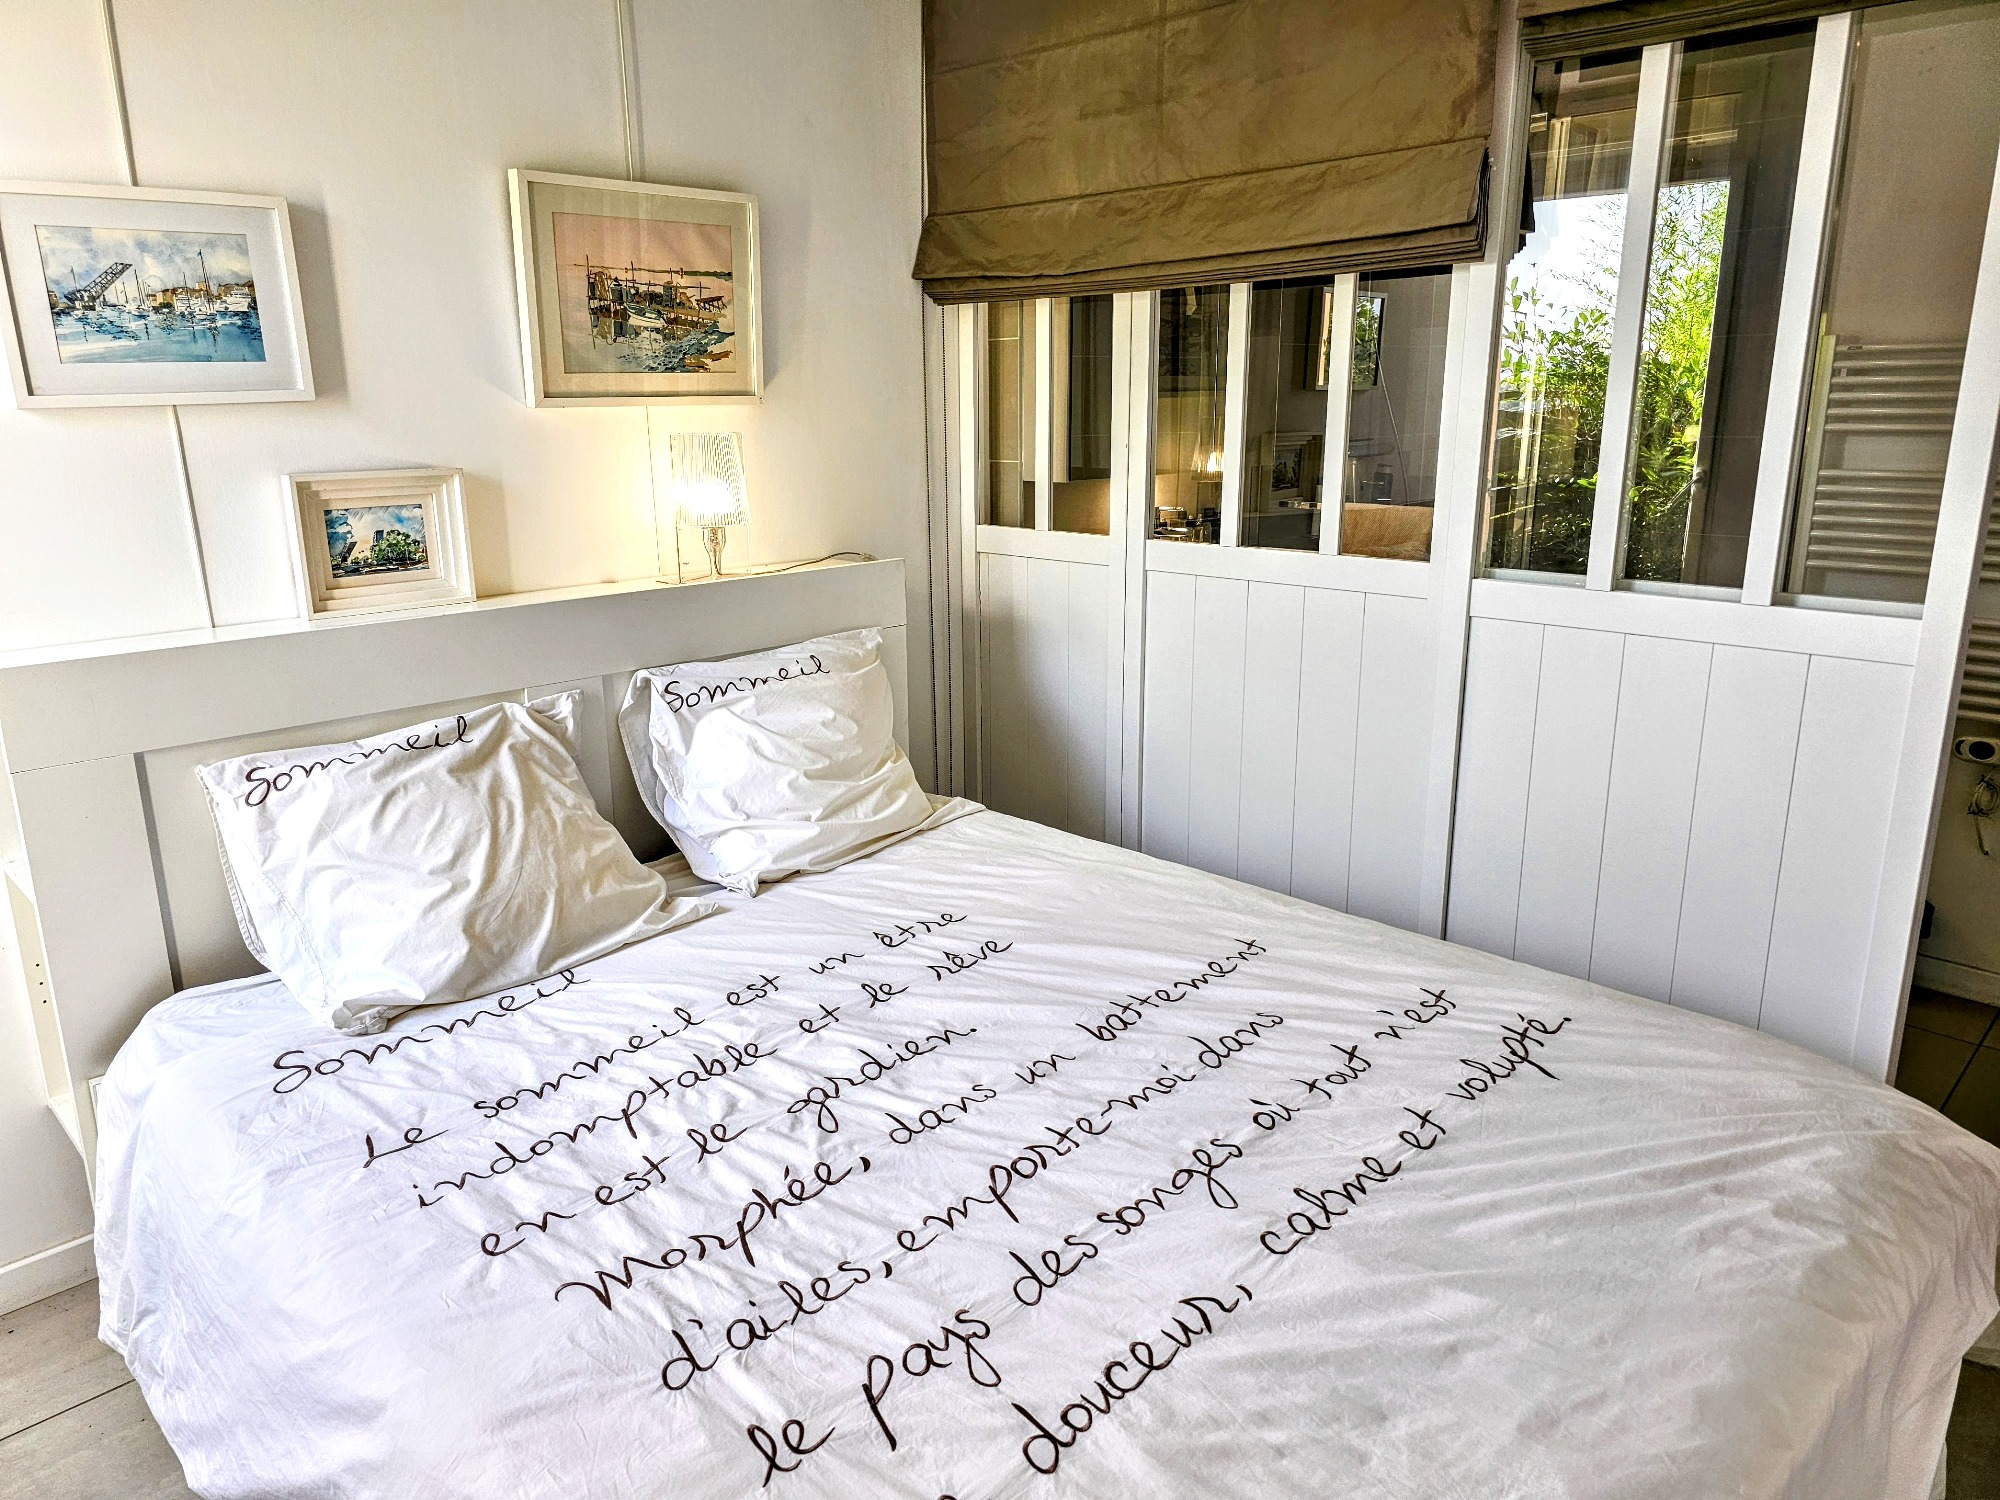 Sommeil
Sommeil
Sommeil
Le sommeil est un être
indomptable et le rêve
en est le gardien.
Morphée, dans un battement
d'ailes, emporte-moi dans
le pays des songes où tout n'est
douceur, calme et volupté.